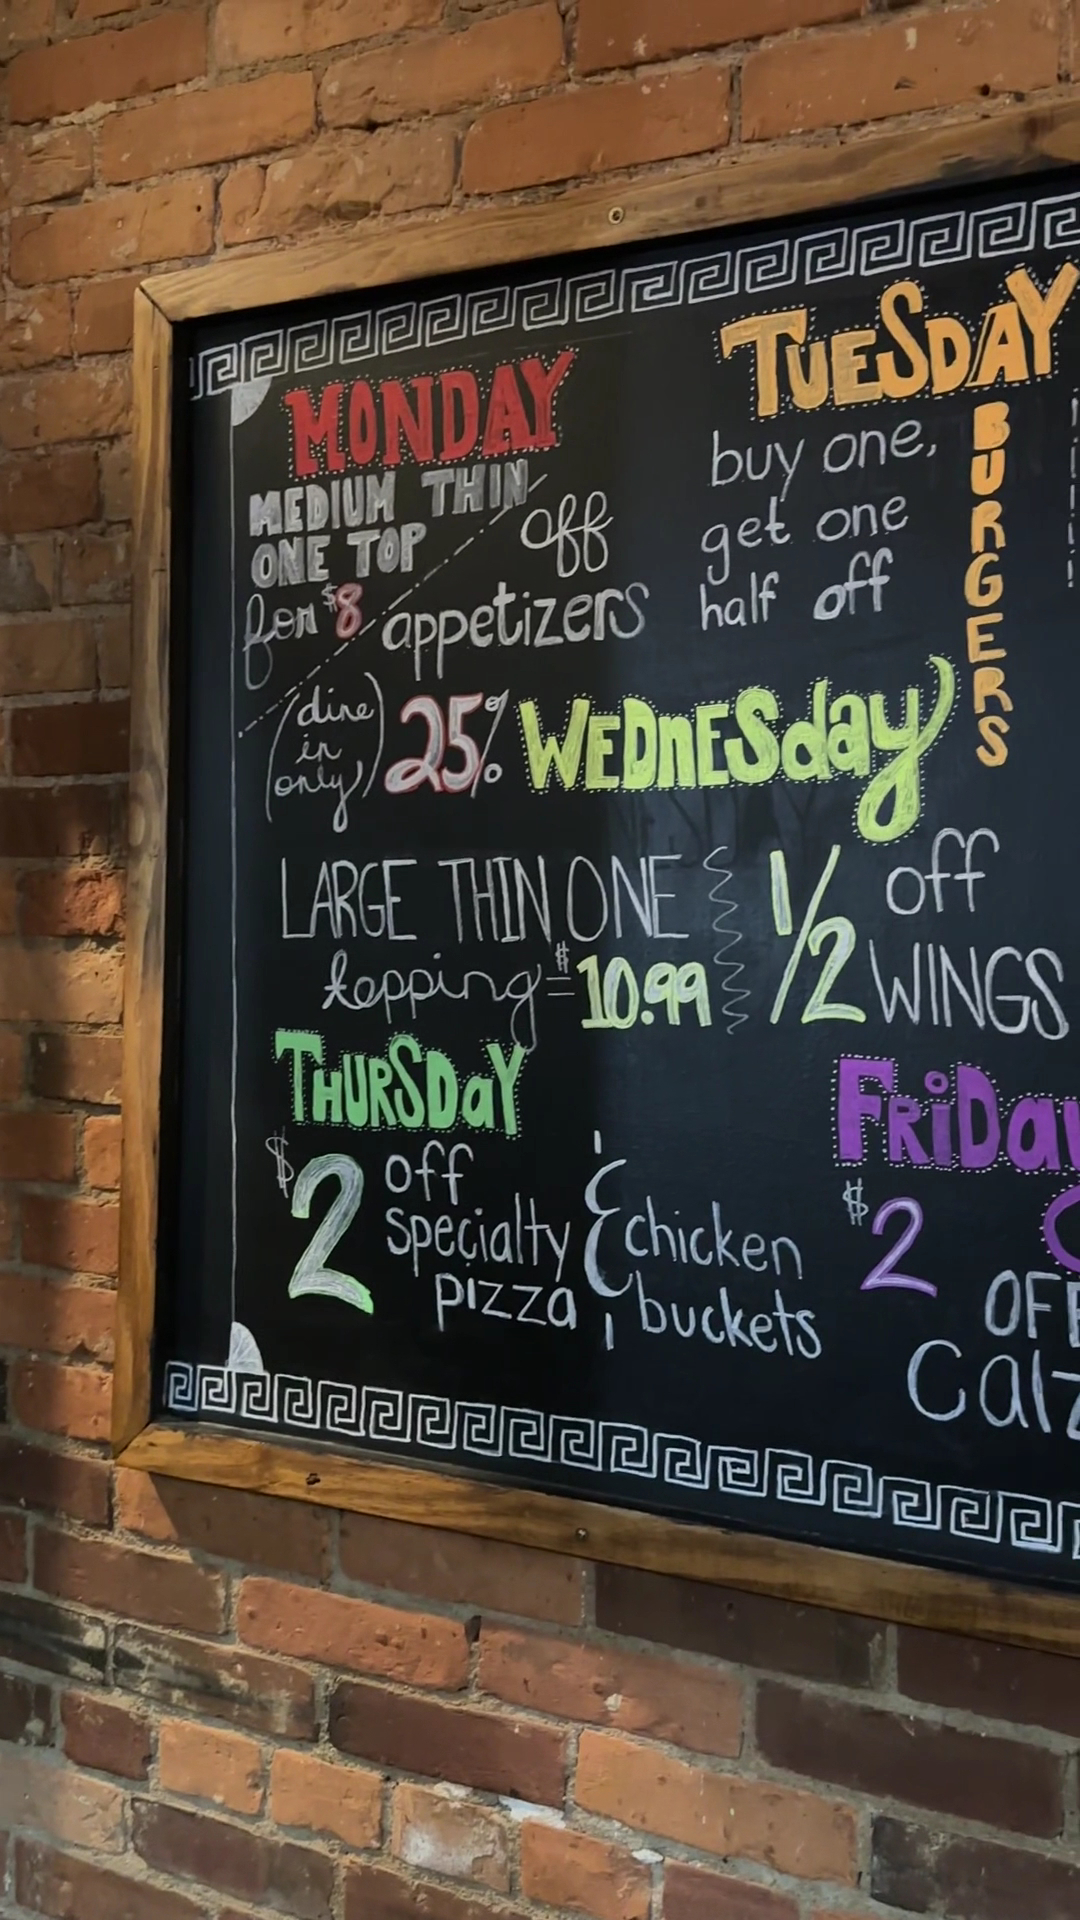 MONDAY
MEDIUM THIN
ONE TOP
for $8
off
appetizers
(dine
in
only)
25%
TUESDAY
buy one,
get one
half off
BURGERS
WEDNESday
LARGE THIN ONE
topping = $10.99
1/2 off
WINGS
THURSDaY
$2 off
specialty
pizza
& chicken
buckets
FRiDay
$2
OFF